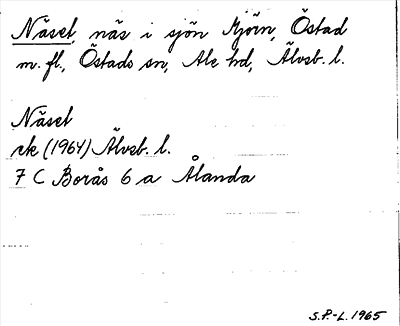 Näset, näs i sjön Mjörn, Östad
m. fl., Östads sn, Ale hd, Älvsb. l.
Näset
rk (1964) Älvsb. l.
7 C Borås 6 a Ålanda
S.P.-L. 1965